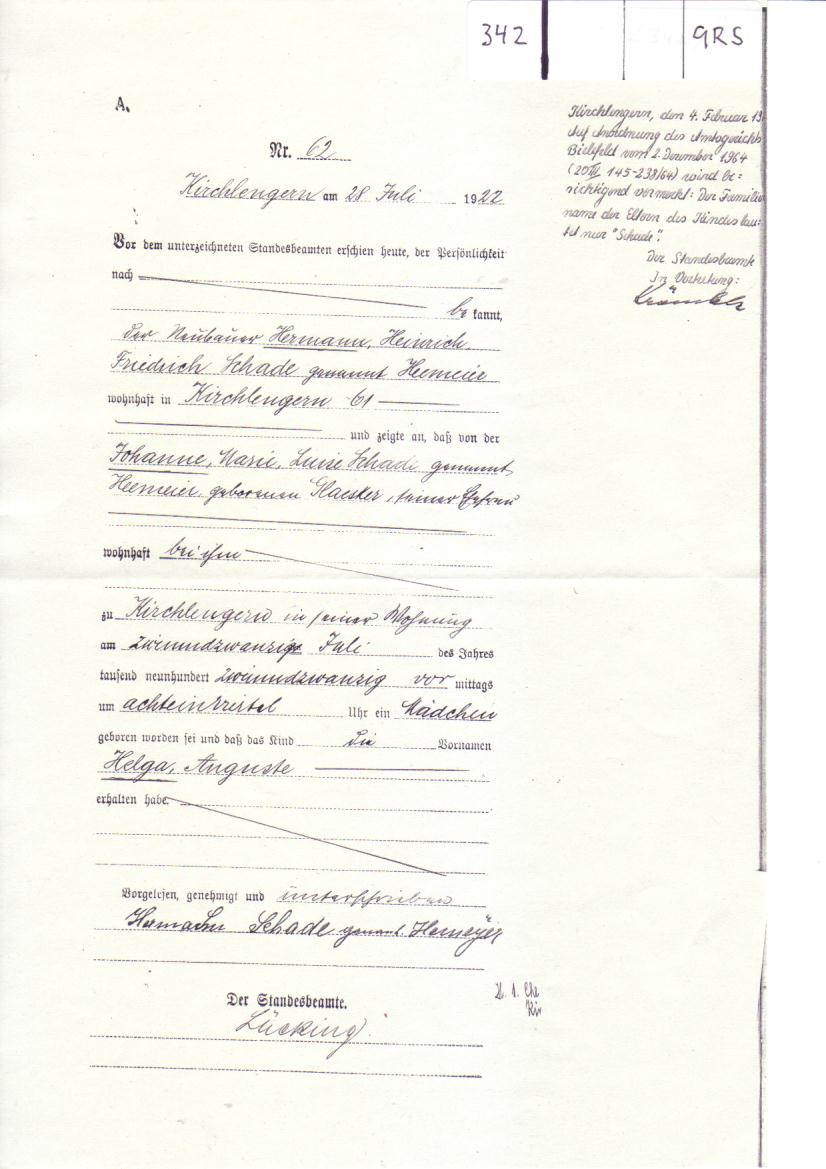 342
GRS
A.
Kirchlengern, den 4. Februar 19
Auf Anordnung des Amtsgerichts
Bielefeld vom 2. Dezember 1964
(20 III 145-238/64) wird be-
richtigend vermerkt: Der Familien
name der Eltern des Kindes lau-
tet nur "Schade".
Der Standesbeamte
In Vertretung:
Nr. 62
Kirchlengern am 28 Juli 1922
Vor dem unterzeichneten Standesbeamten erschien heute, der Persönlichkeit
nach
be kannt,
der Neubauer Hermann, Heinrich,
Friedrich Schade genannt Heemeier
wohnhaft in Kirchlengern 61
und zeigte an, daß von der
Johanne, Marie, Luise Schade genannt
Heemeier, geborenen Klaesker, seiner Ehefrau
wohnhaft bei ihm
zu Kirchlengern in seiner Wohnung
am zweiundzwanzig Juli des Jahres
tausend neunhundert zweiundzwanzig vor mittags
um achteinviertel Uhr ein Mädchen
geboren worden sei und daß das Kind die Vornamen
Helga, Auguste
erhalten habe.
Vorgelesen, genehmigt und unterschrieben
Hermann Schade genant. Hemeyer
Der Standesbeamte.
Lücking.